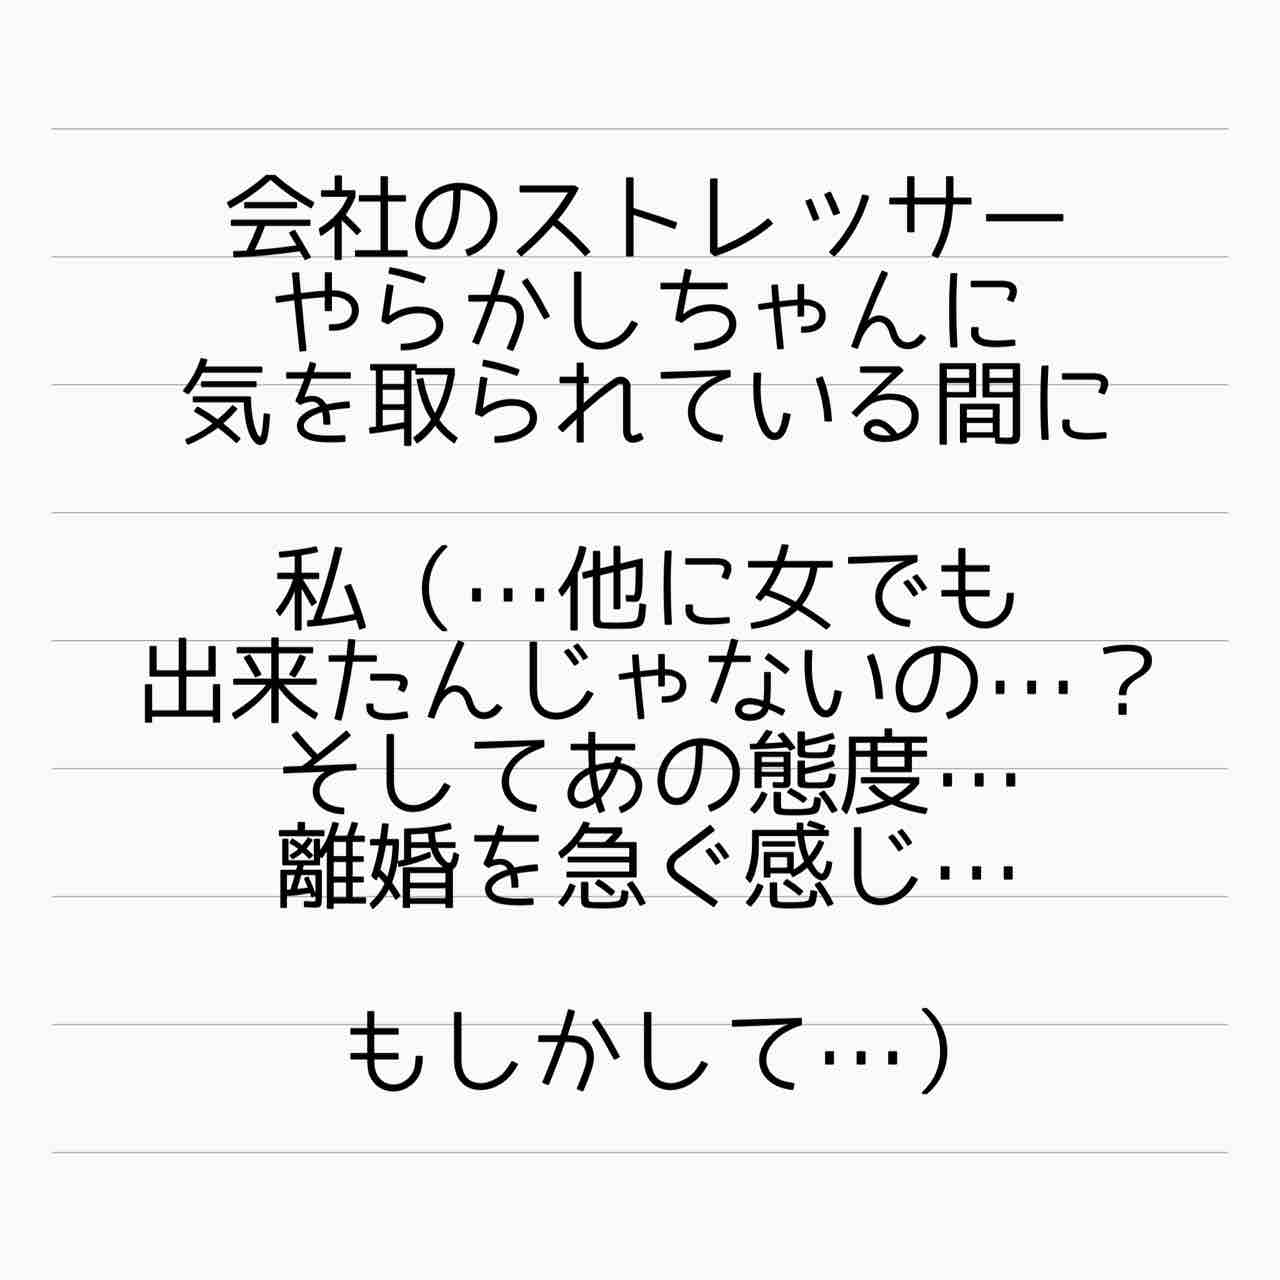 会社のストレッサー
やらかしちゃんに
気を取られている間に
私（…他に女でも
出来たんじゃないの…？
そしてあの態度…
離婚を急ぐ感じ…
もしかして…）